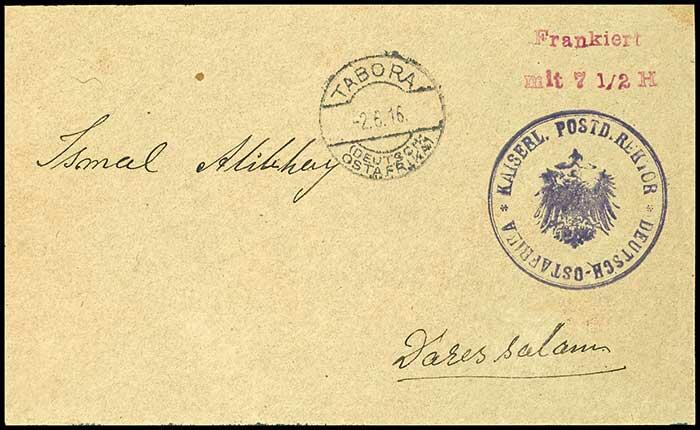 Frankiert
mit 7 1/2 H
TABORA
-2.6.16.
(DEUTSCH-
OSTAFRIKA)
* KAISERL. POSTD.REKTOR * DEUTSCH-OSTAFRIKA
Ismal Alibhay
Daressalam